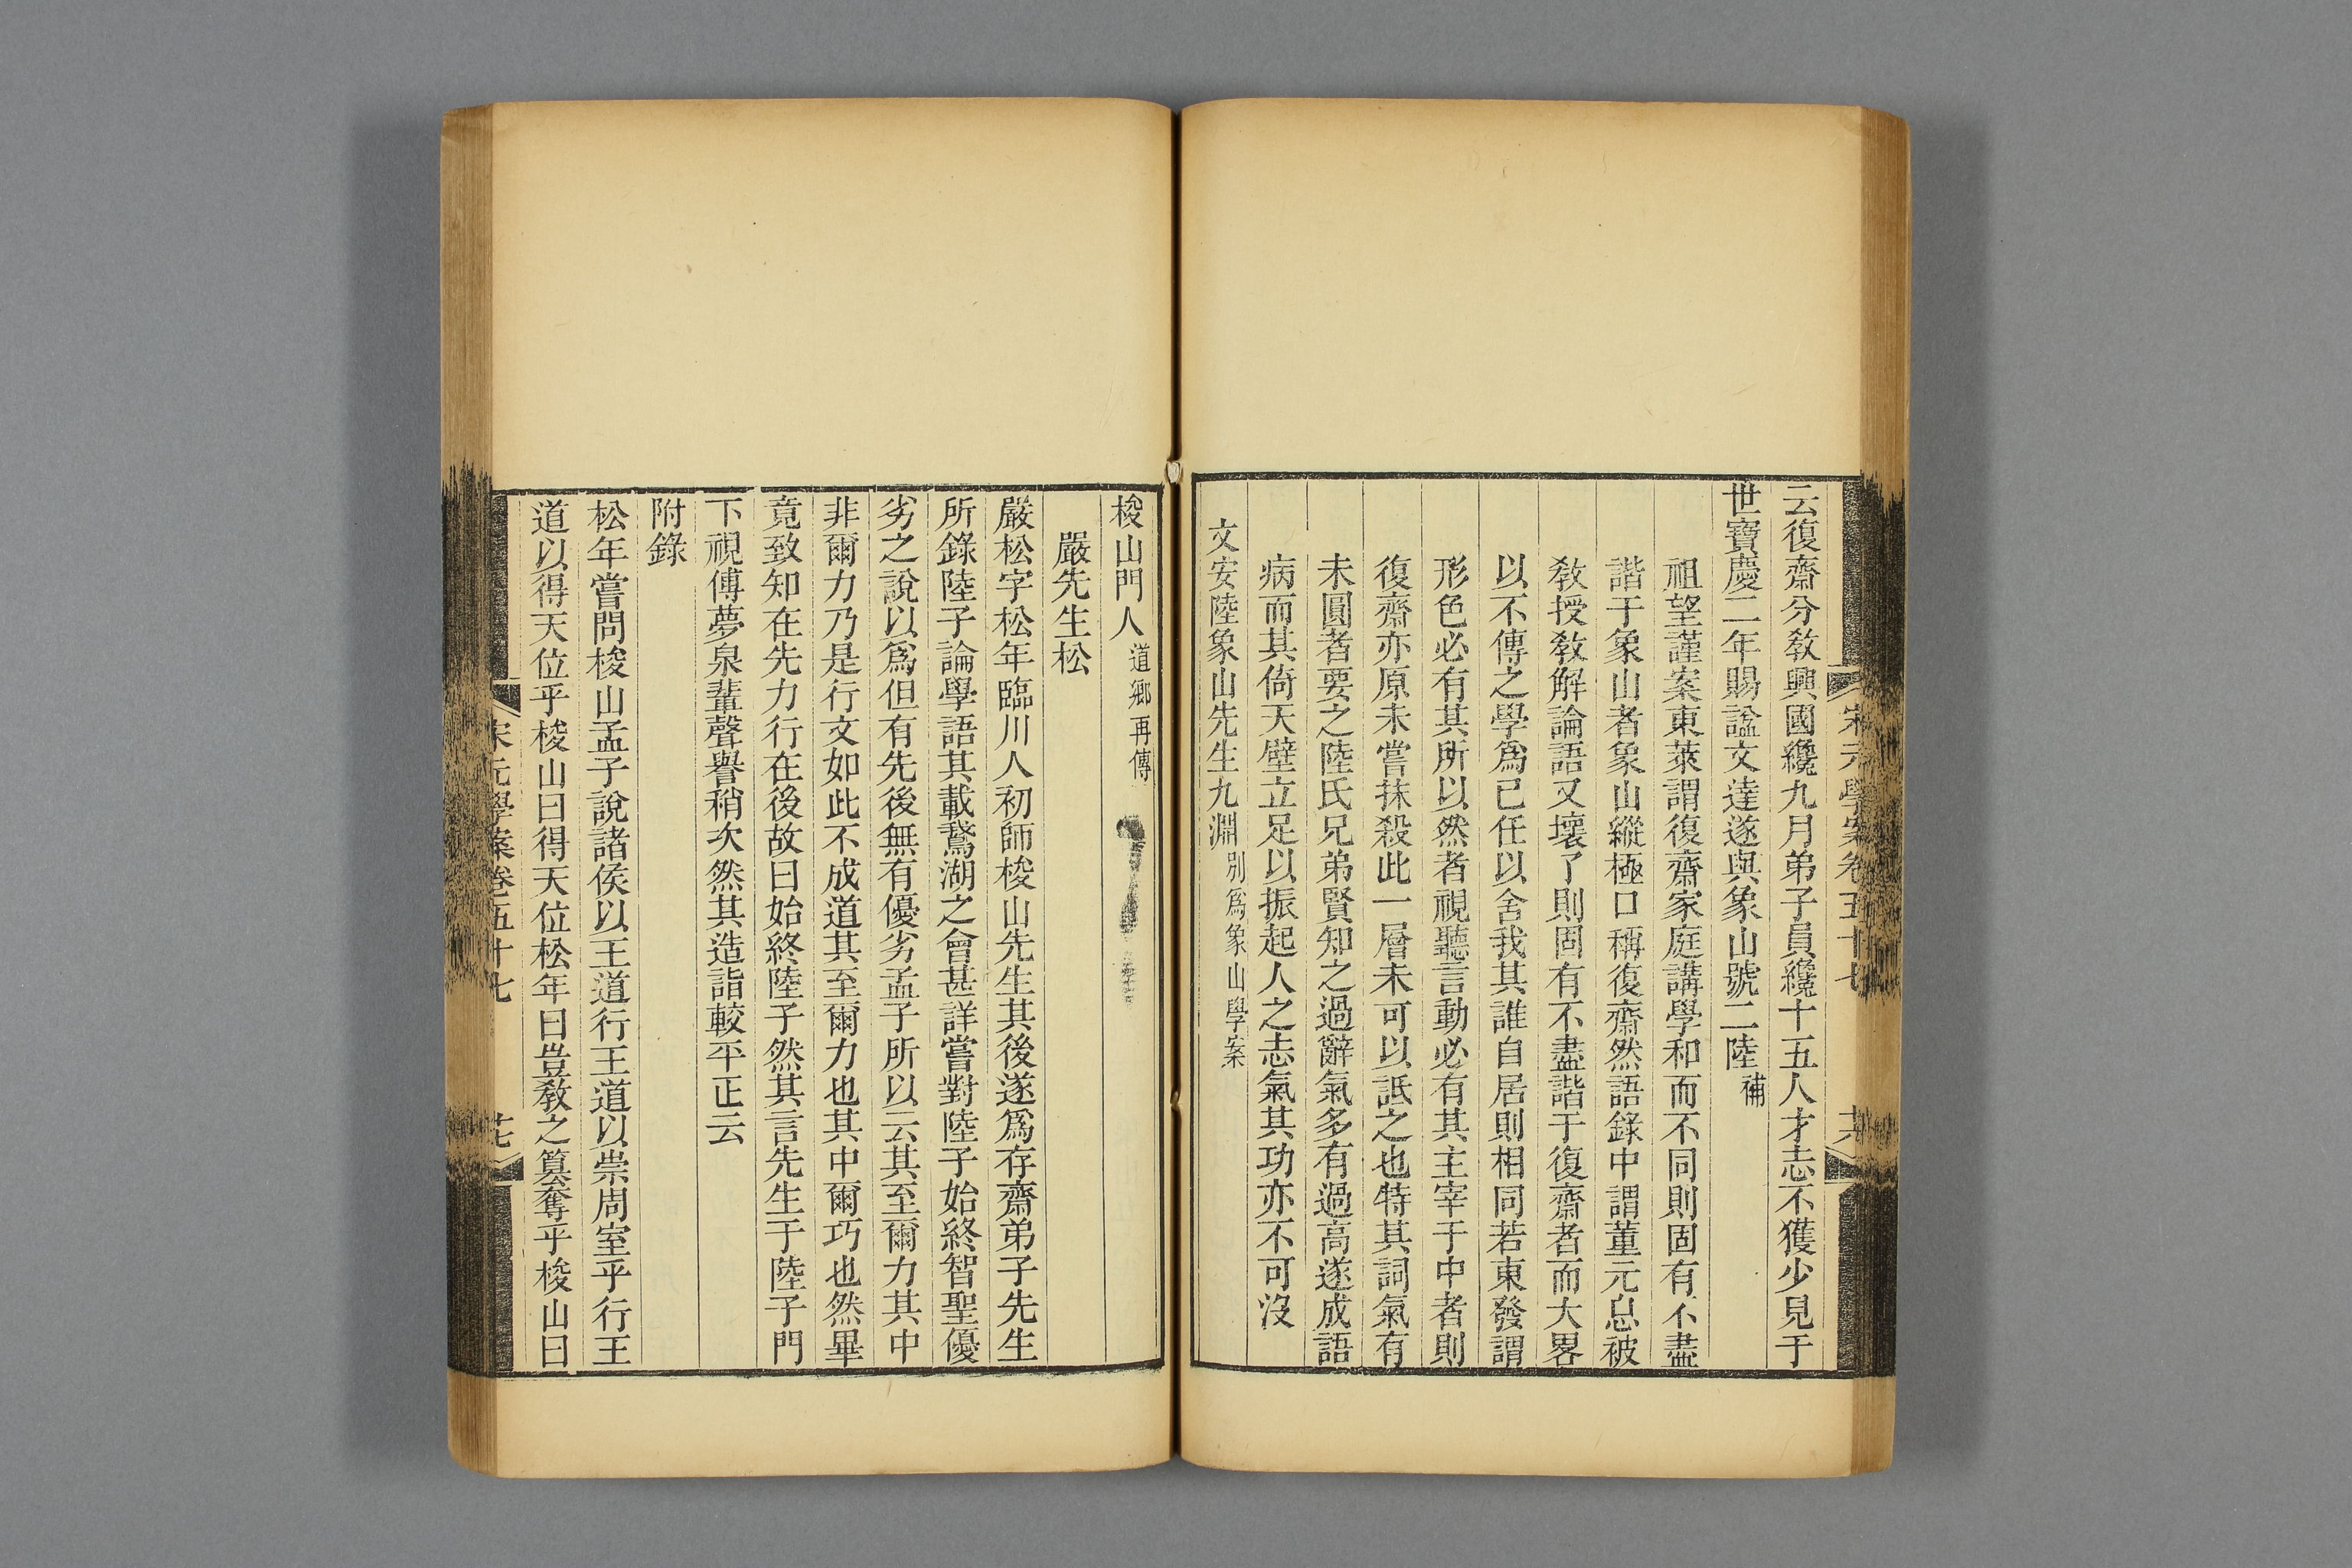 宋元學案卷五十七
六
云復齋分敎興國纔九月弟子員纔十五人才志不獲少見于
世寶慶二年賜諡文達遂與象山號二陸補
祖望謹案東萊謂復齋家庭講學和而不同則固有不盡
諧于象山者象山縱極口稱復齋然語錄中謂董元息被
敎授敎解論語又壞了則固有不盡諧于復齋者而大畧
以不傳之學爲已任以舍我其誰自居則相同若東發謂
形色必有其所以然者視聽言動必有其主宰于中者則
復齋亦原未嘗抹殺此一層未可以詆之也特其詞氣有
未圓者要之陸氏兄弟賢知之過辭氣多有過高遂成語
病而其倚天壁立足以振起人之志氣其功亦不可沒
文安陸象山先生九淵別爲象山學案
梭山門人道鄉再傳
嚴先生松
嚴松字松年臨川人初師梭山先生其後遂爲存齋弟子先生
所錄陸子論學語其載鵞湖之會甚詳嘗對陸子始終智聖優
劣之說以爲但有先後無有優劣孟子所以云其至爾力其中
非爾力乃是行文如此不成道其至爾力也其中爾巧也然畢
竟致知在先力行在後故曰始終陸子然其言先生于陸子門
下視傅夢泉輩聲譽稍次然其造詣較平正云
附錄
松年嘗問梭山孟子說諸侯以王道行王道以崇周室乎行王
道以得天位乎梭山曰得天位松年曰豈敎之簒奪乎梭山曰
宋元學案卷五十七
七